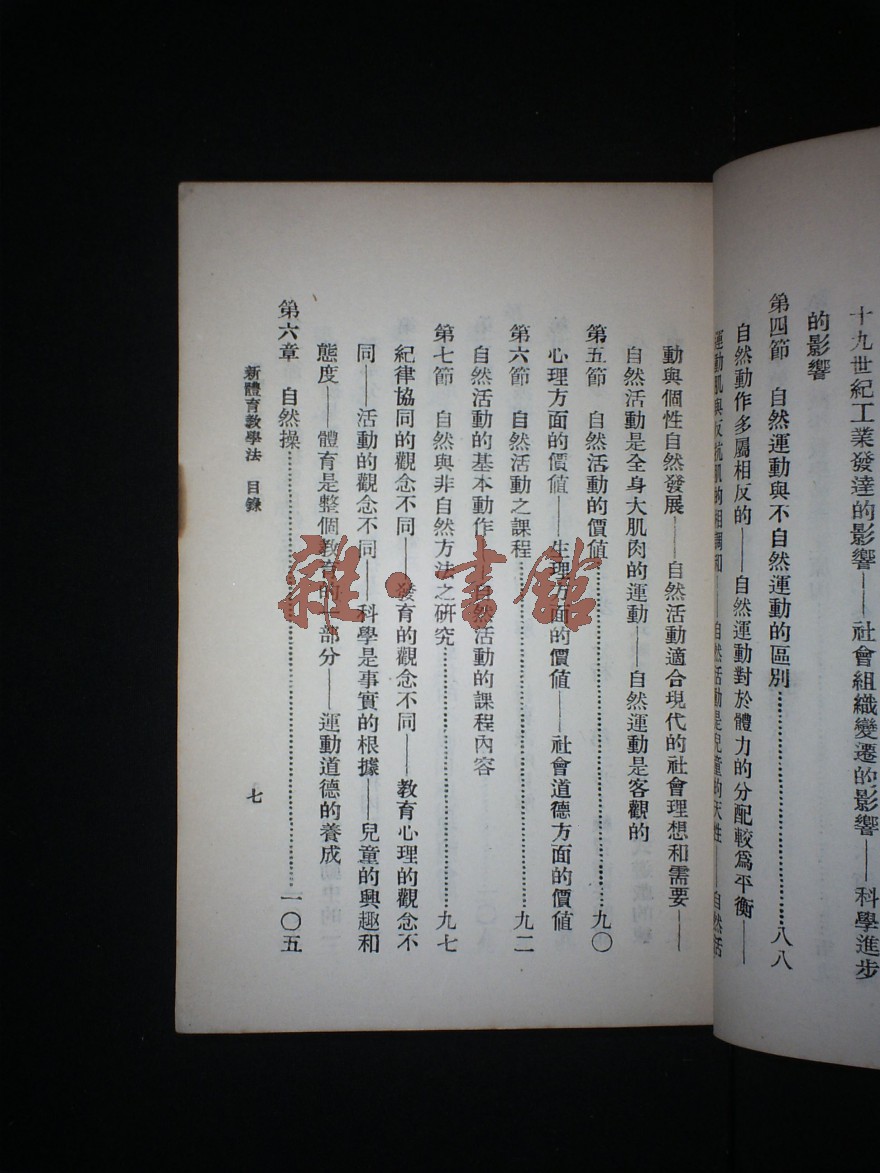 十九世紀工業發達的影響——社會組織變遷的影響——科學進步
的影響
第四節 自然運動與不自然運動的區別……………………八八
自然動作多屬相反的——自然運動對於體力的分配較爲平衡——
運動肌與反抗肌的相調和——自然活動是兒童的天性——自然活
動與個性自然發展——自然活動適合現代的社會理想和需要——
自然活動是全身大肌肉的運動——自然運動是客觀的
第五節 自然活動的價值……………………九〇
心理方面的價值——生理方面的價值——社會道德方面的價值
第六節 自然活動之課程……………………九二
自然活動的基本動作——自然活動的課程內容
第七節 自然與非自然方法之研究……………………九七
紀律協同的觀念不同——發育的觀念不同——教育心理的觀念不
同——活動的觀念不同——科學是事實的根據——兒童的興趣和
態度——體育是整個教育的一部分——運動道德的養成
第六章 自然操……………………一〇五
新體育教學法 目錄
七
雜·書館